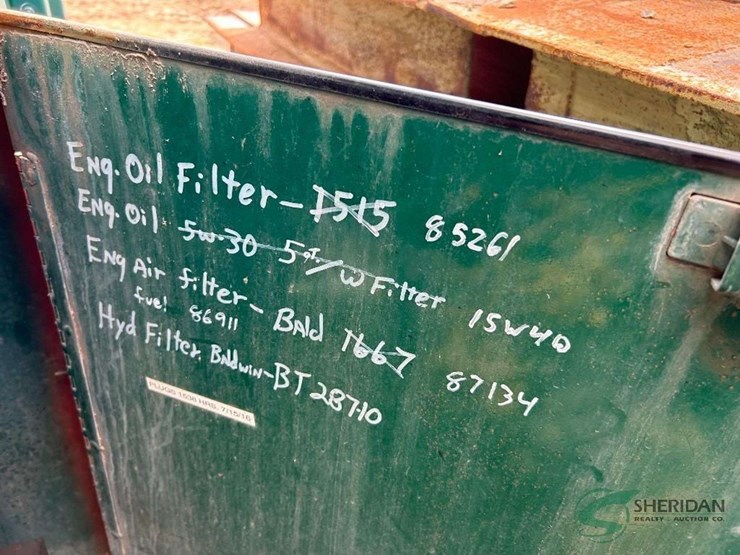 Eng. Oil Filter - 1515 85261
Eng. Oil 5w-30 5 qt. / W Filter 15W40
Eng Air filter - Bald 1667 87134
fuel 86911
Hyd Filter. Baldwin - BT 287-10
PLUGS 1636 HRS. 7/15/16
SHERIDAN
REALTY & AUCTION CO.